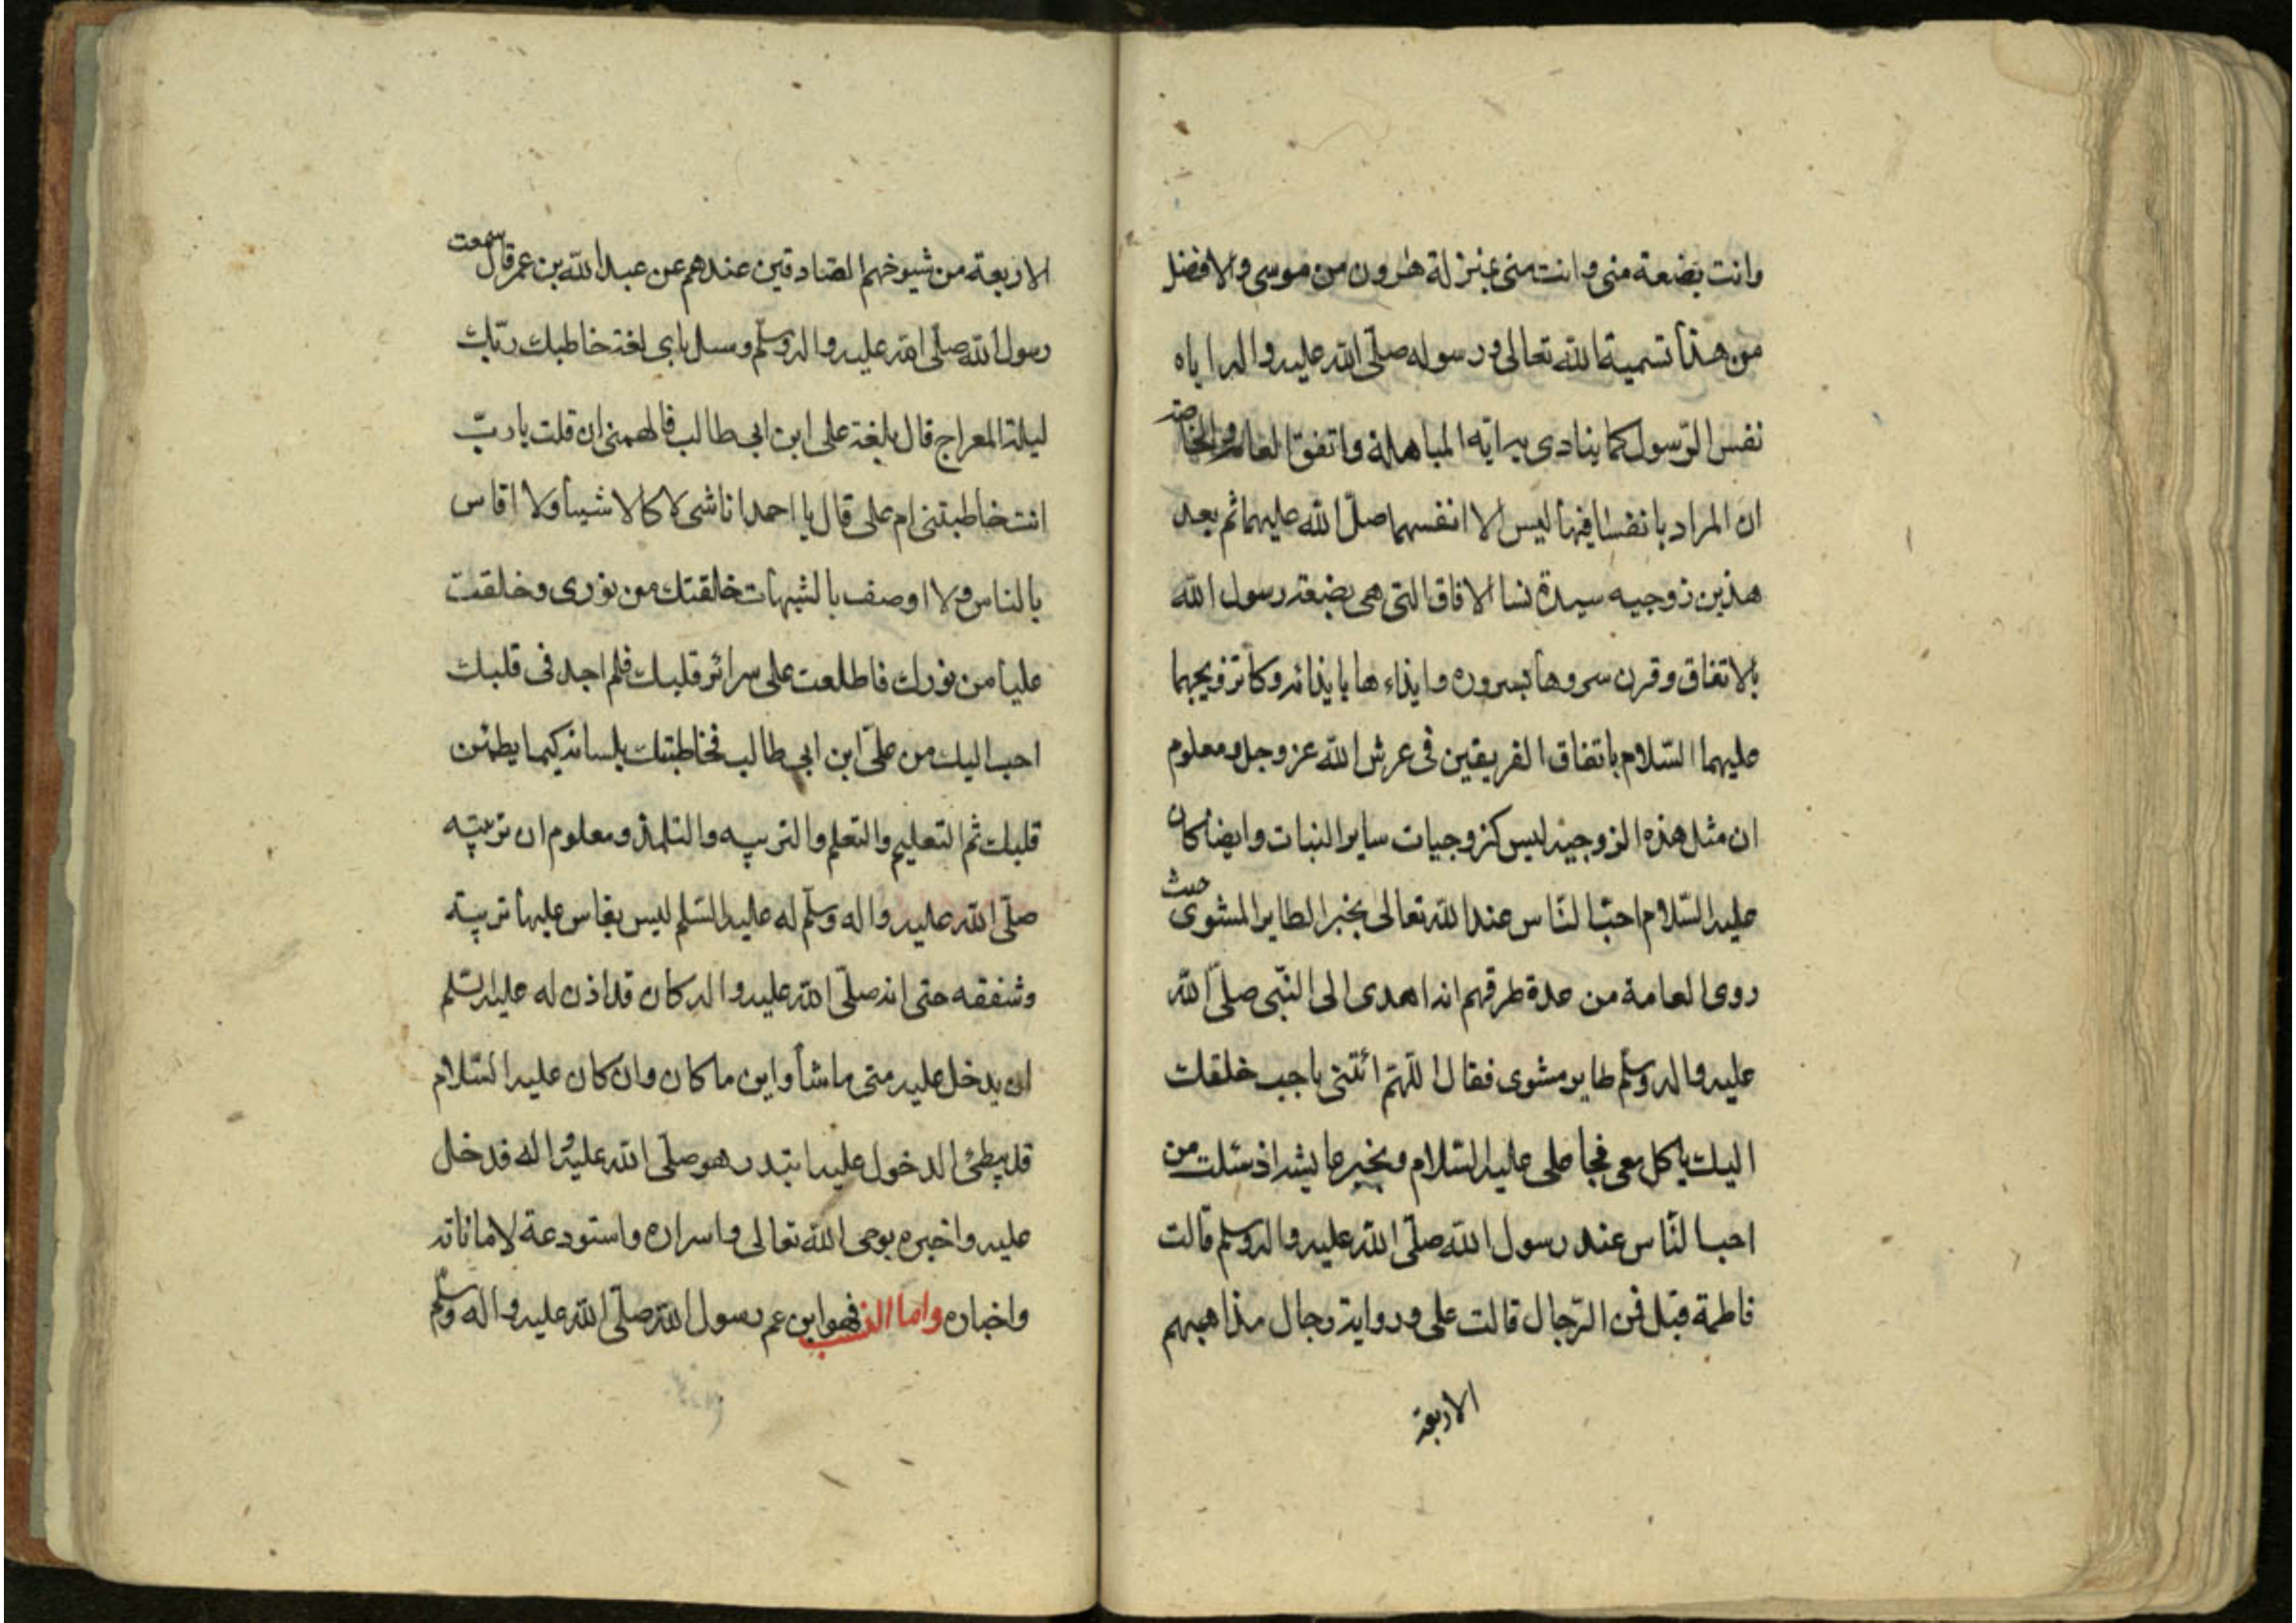 وانت بضعة منى وانت منى بمنزلة هرون من موسى والافضل
من هذا تسمية الله تعالى ورسوله صلّى الله عليه واله اياه
نفس الرّسول كما ينادى به اية المباهلة واتفق العامة والخاصة
ان المراد بانفسنا فيها ليس الا انفسهما صلّ الله عليهما ثم بعد
هذين تزوجيه سيدة نسا الافاق التى هى بضعة رسول الله
بالاتفاق وقرن سروها بسروره وايذاءها بايذائه وكا تزويجهما
عليهما السّلام باتفاق الفريقين فى عرش الله عز وجل ومعلوم
ان مثل هذه الزوجية ليس كزوجيات ساير البنات وايضا كان
عليه السّلام احبّ النّاس عند الله تعالى بخبر الطاير المشوى حيث
روى العامة من عدة طرقهم انه اهدى الى النّبى صلّى الله
عليه واله وسلّم طاير مشوى فقال اللّهمّ ائتنى باحب خلقك
اليك ياكل معى فجا على عليه السّلام وبخبر عايشه اذ سئلت من
احب النّاس عند رسول الله صلّى الله عليه واله وسلم قالت
فاطمة فقيل فمن الرّجال قالت على ورواية رجال مذاهبهم
الاربعة
الاربعة من شيوخهم الصّادقين عندهم عن عبد الله بن عمر قال سمعت
رسول الله صلّى الله عليه واله وسلّم وسئل باى لغة خاطبك ربّك
ليلة المعراج قال بلغة على ابن ابى طالب فالهمنى ان قلت يا ربّ
انت خاطبتنى ام على قال يا احمد انا شى لا كالاشيا ولا اقاس
بالناس ولا اوصف بالشبهات خلقتك من نورى وخلقت
عليا من نورك فاطلعت على سرائر قلبك فلم اجد فى قلبك
احب اليك من علىّ ابن ابى طالب فخاطبتك بلسانه كيما يطمئن
قلبك ثم التعليم والتعلم والتربيه والتلمذ ومعلوم ان تربيته
صلّى الله عليه واله وسلّم له عليه السّلم ليس يقاس عليها تربية
وشفقه حتى انه صلّى الله عليه واله كان قد اذن له عليه السّلم
ان يدخل عليه متى ما شأ واين ما كان وان كان عليه السّلام
قد يبطئ الدخول عليه ابتدر هو صلّى الله عليه واله فدخل
عليه واخبره بوحى الله تعالى واسراره واستودعة لاماناته
واخباره واما النسب فهو ابن عم رسول الله صلّى الله عليه واله وسلّم